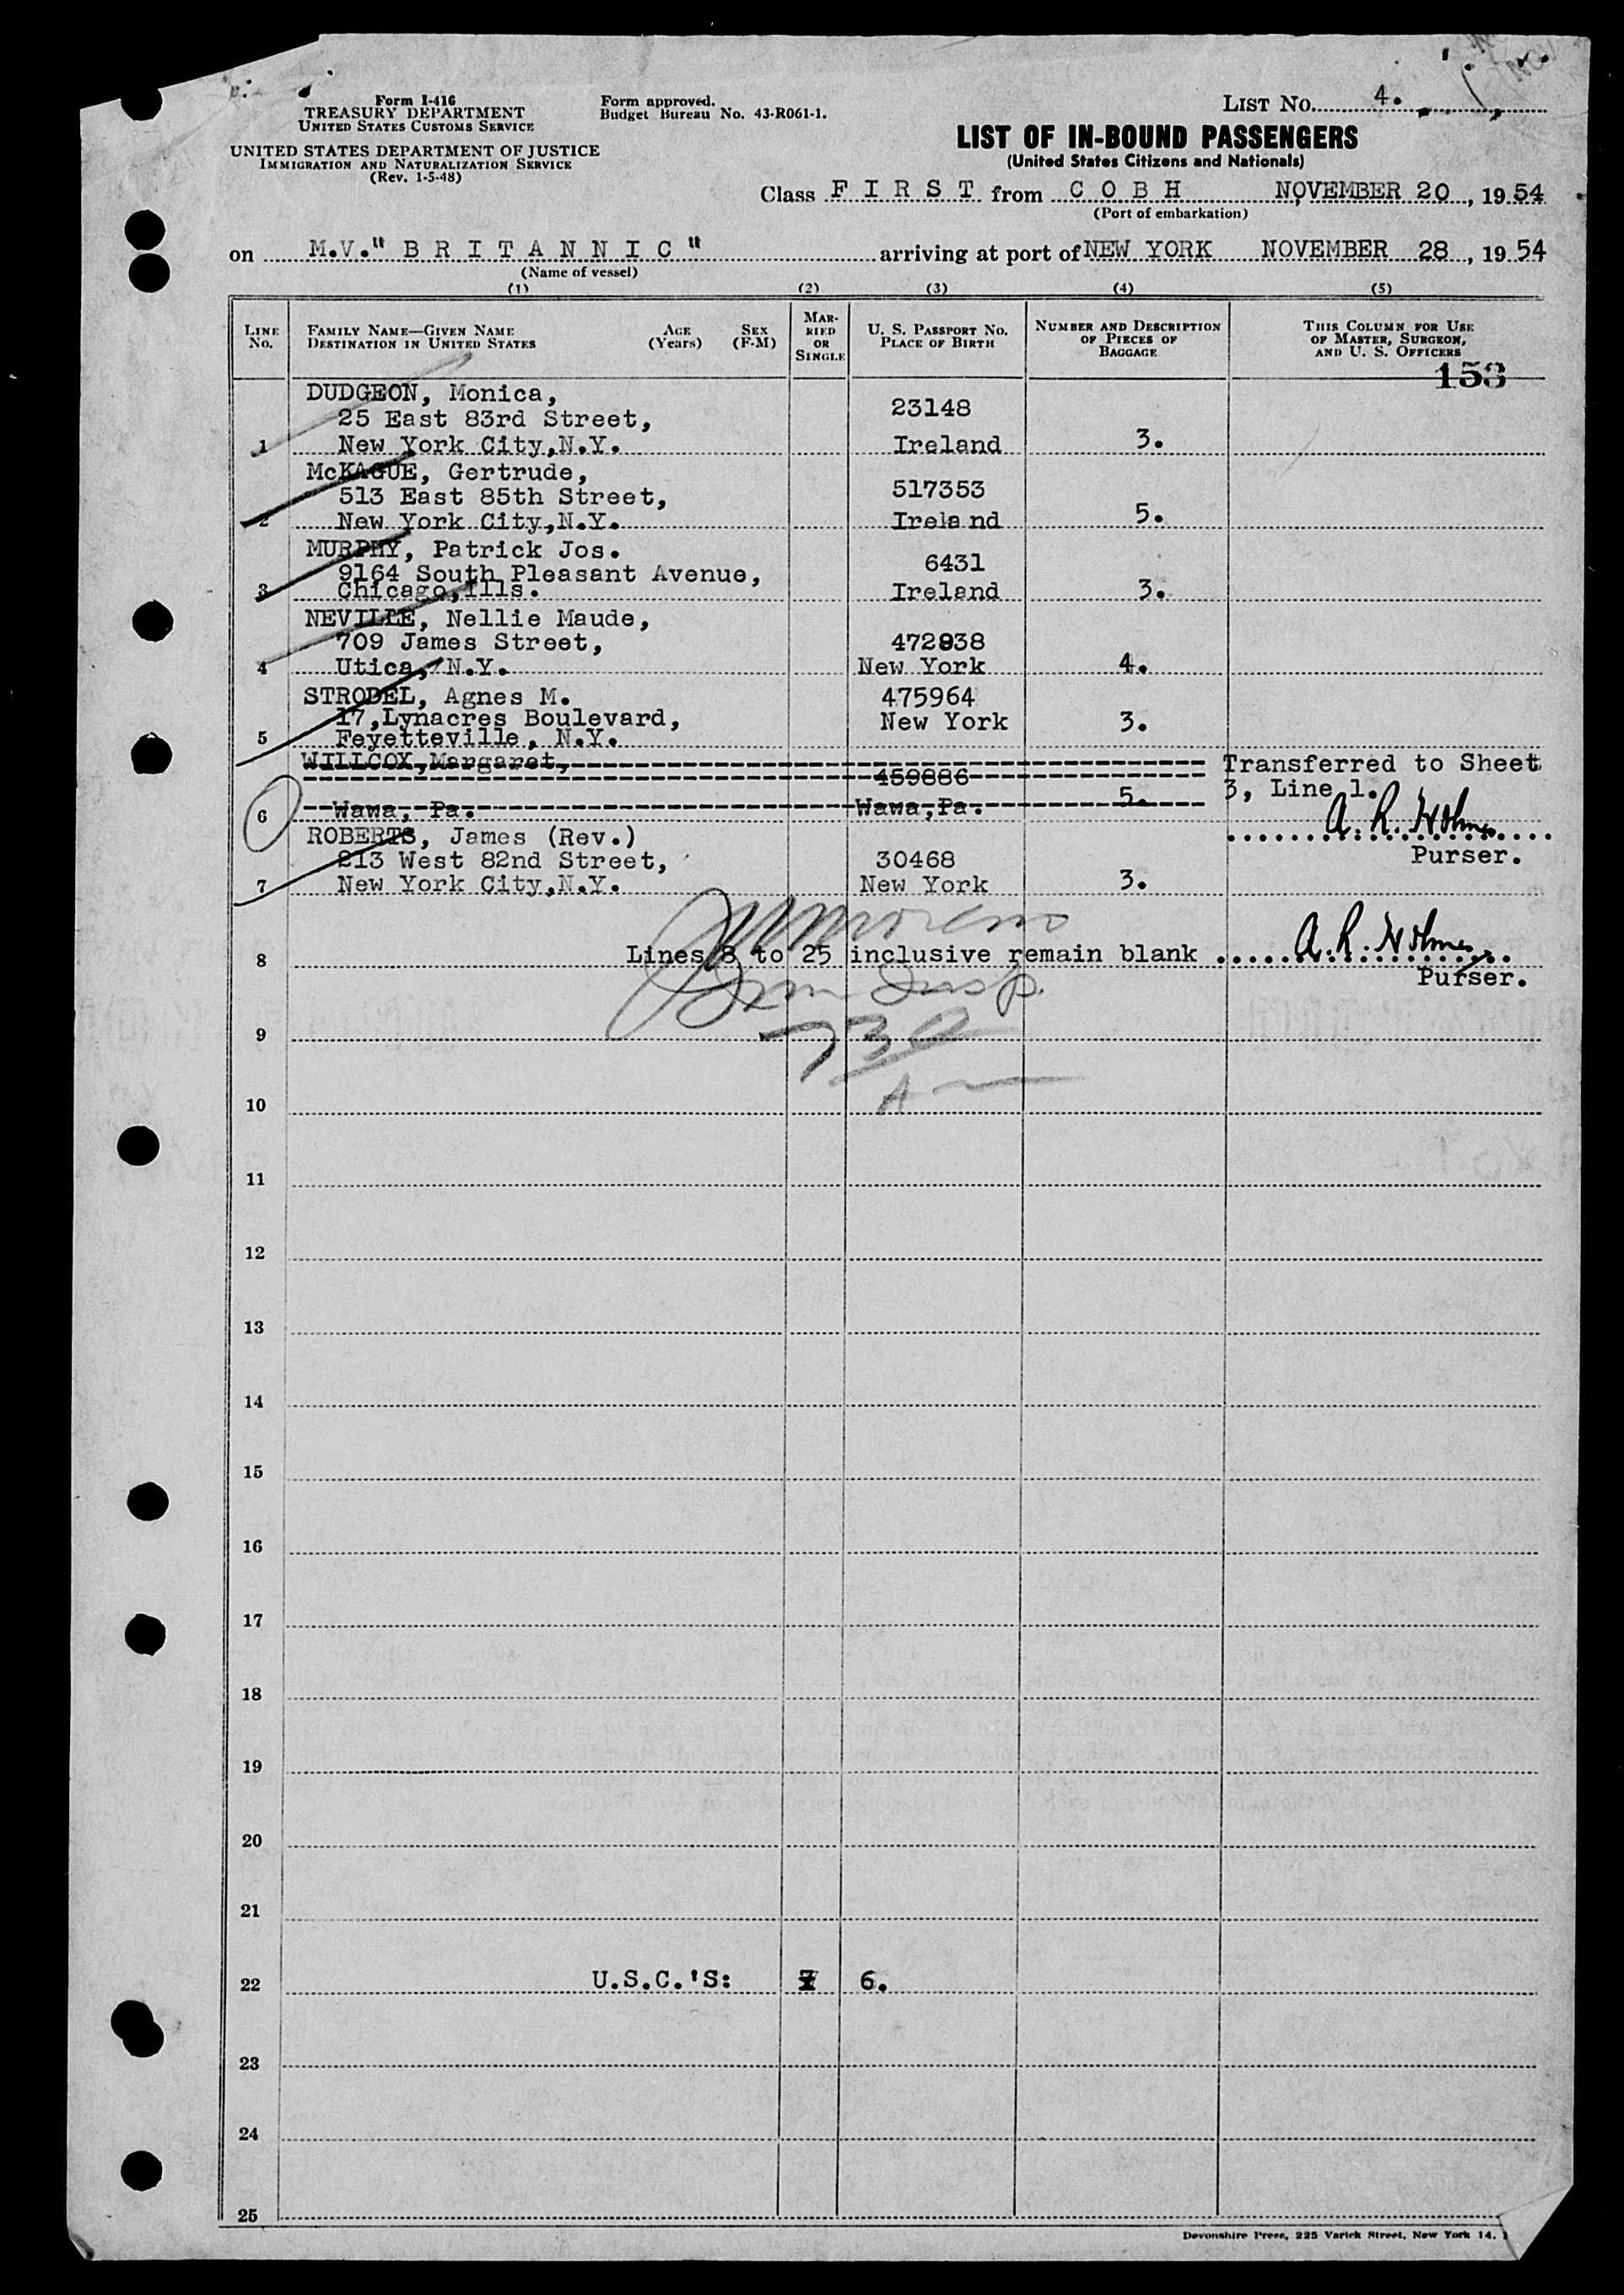 Form I-416
TREASURY DEPARTMENT
UNITED STATES CUSTOMS SERVICE
UNITED STATES DEPARTMENT OF JUSTICE
IMMIGRATION AND NATURALIZATION SERVICE
(Rev. 1-5-48)
Form approved.
Budget Bureau No. 43-R061-1.
LIST NO. 4.
LIST OF IN-BOUND PASSENGERS
(United States Citizens and Nationals)
Class FIRST from COBH NOVEMBER 20, 1954
(Port of embarkation)
on M.V. "BRITANNIC" arriving at port of NEW YORK NOVEMBER 28, 1954
(Name of vessel)
(1) (2) (3) (4) (5)
LINE No. FAMILY NAME—GIVEN NAME DESTINATION IN UNITED STATES AGE (Years) SEX (F-M) MARRIED OR SINGLE U. S. PASSPORT NO. PLACE OF BIRTH NUMBER AND DESCRIPTION OF PIECES OF BAGGAGE THIS COLUMN FOR USE OF MASTER, SURGEON, AND U. S. OFFICERS
153
DUDGEON, Monica,
25 East 83rd Street, 23148
1 New York City, N.Y. Ireland 3.
McKAGUE, Gertrude,
513 East 85th Street, 517353
2 New York City, N.Y. Ireland 5.
MURPHY, Patrick Jos.
9164 South Pleasant Avenue, 6431
3 Chicago, Ills. Ireland 3.
NEVILLE, Nellie Maude,
709 James Street, 472938
4 Utica, N.Y. New York 4.
STRODEL, Agnes M. 475964
17, Lynacres Boulevard, New York 3.
5 Feyetteville, N.Y.
WILLCOX, Margaret, Transferred to Sheet
459886 3, Line 1.
6 Wawa, Pa. Wawa, Pa. 5. A. R. Holmes
Purser.
ROBERTS, James (Rev.)
213 West 82nd Street, 30468
7 New York City, N.Y. New York 3.
8 Lines 8 to 25 inclusive remain blank A. R. Holmes
Purser.
9
10
11
12
13
14
15
16
17
18
19
20
21
22 U.S.C.'S: 7 6.
23
24
25
Devonshire Press, 225 Varick Street, New York 14,